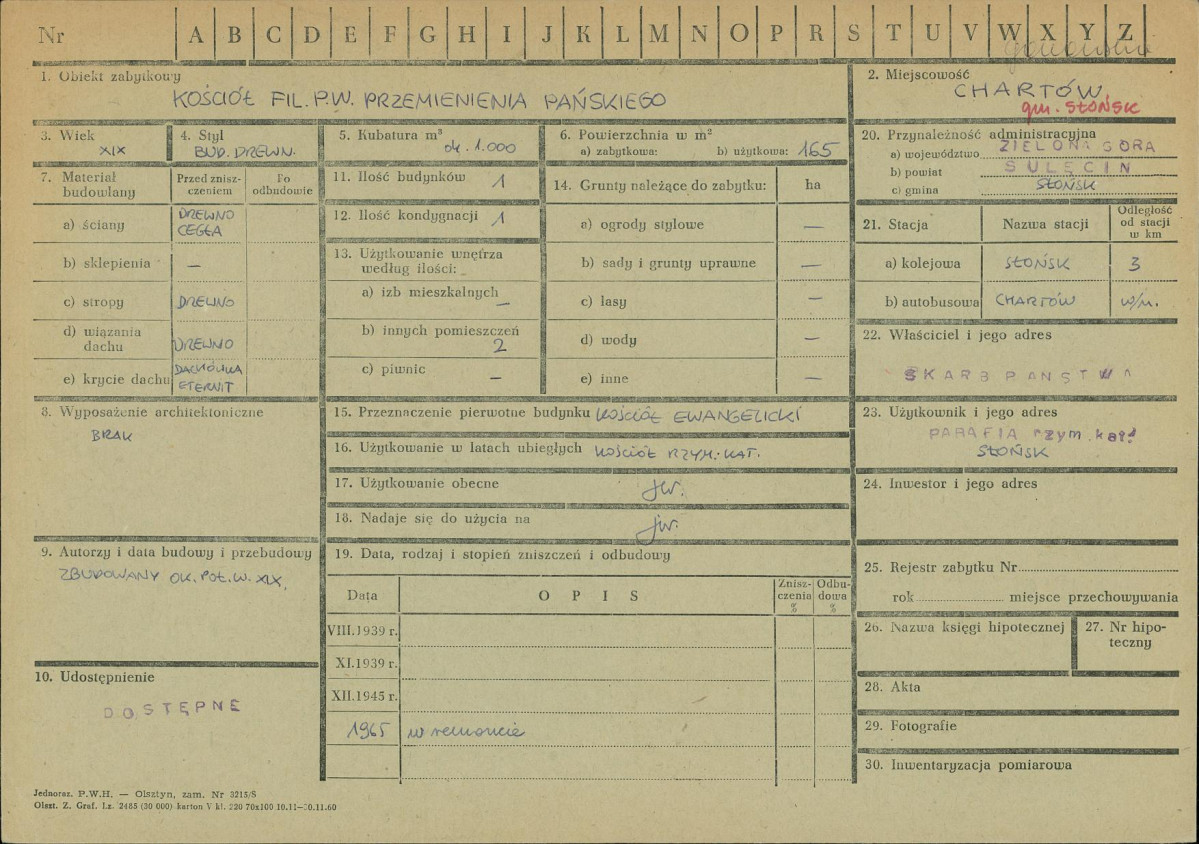 Nr A B C D E F G H I J K L M N O P R S T U V W X Y Z
1. Obiekt zabytkowy
KOŚCIÓŁ FIL. P.W. PRZEMIENIENIA PAŃSKIEGO
2. Miejscowość
CHARTÓW
gm. SŁOŃSK
3. Wiek
XIX
4. Styl
BUD. DREWN.
5. Kubatura m³
ok. 1.000
6. Powierzchnia w m²
a) zabytkowa: b) użytkowa: 165
7. Materiał budowlany
Przed znisz-czeniem
Po odbudowie
a) ściany DREWNO
CEGŁA
b) sklepienia —
c) stropy DREWNO
d) wiązania dachu DREWNO
e) krycie dachu DACHÓWKA
ETERNIT
8. Wyposażenie architektoniczne
BRAK
9. Autorzy i data budowy i przebudowy
ZBUDOWANY OK. POŁ. W. XIX,
10. Udostępnienie
DOSTĘPNE
11. Ilość budynków 1
12. Ilość kondygnacji 1
13. Użytkowanie wnętrza
według ilości:
a) izb mieszkalnych —
b) innych pomieszczeń 2
c) piwnic —
14. Grunty należące do zabytku: ha
a) ogrody stylowe —
b) sady i grunty uprawne —
c) lasy —
d) wody —
e) inne —
15. Przeznaczenie pierwotne budynku KOŚCIÓŁ EWANGELICKI
16. Użytkowanie w latach ubiegłych KOŚCIÓŁ RZYM.-KAT.
17. Użytkowanie obecne jw.
18. Nadaje się do użycia na jw.
19. Data, rodzaj i stopień zniszczeń i odbudowy
Data OPIS Znisz-czenia % Odbu-dowa %
VIII.1939 r.
XI.1939 r.
XII.1945 r.
1965 w remoncie
20. Przynależność administracyjna
a) województwo ZIELONA GÓRA
b) powiat SULĘCIN
c) gmina SŁOŃSK
21. Stacja Nazwa stacji Odległość od stacji w km
a) kolejowa SŁOŃSK 3
b) autobusowa CHARTÓW w/m.
22. Właściciel i jego adres
SKARB PAŃSTWA
23. Użytkownik i jego adres
PARAFIA rzym. kat.
SŁOŃSK
24. Inwestor i jego adres
25. Rejestr zabytku Nr
rok miejsce przechowywania
26. Nazwa księgi hipotecznej
27. Nr hipo-teczny
28. Akta
29. Fotografie
30. Inwentaryzacja pomiarowa
Jednoraz. P.W.H. — Olsztyn, zam. Nr 3215/S
Olszt. Z. Graf. Lz. 2485 (30 000) karton V kl. 220 70x100 10.11—30.11.60